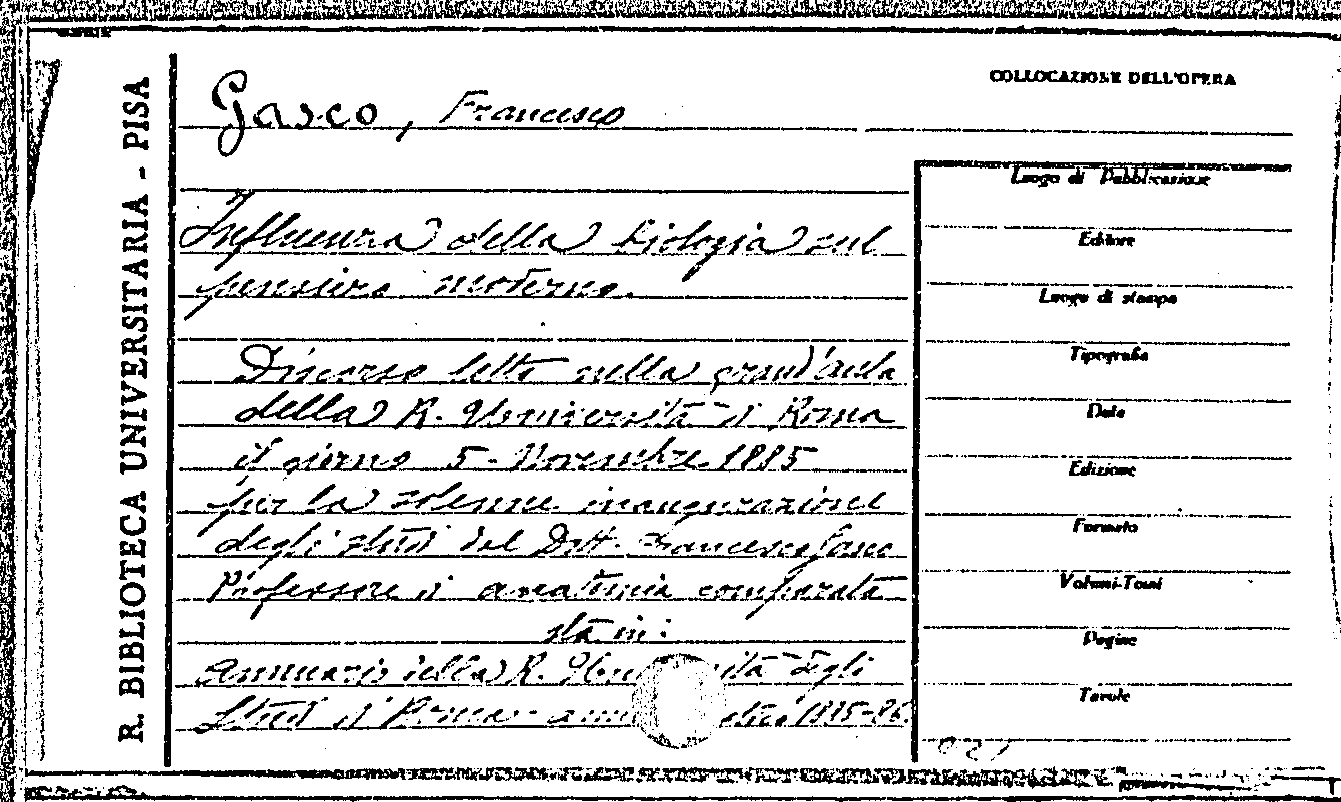 R. BIBLIOTECA UNIVERSITARIA - PISA
COLLOCAZIONE DELL'OPERA
Gasco, Francesco
Influenza della biologia sul
pensiero moderno.
Discorso letto nella grand'aula
della R. Università di Roma
il giorno 5 - Novembre 1885
per la solenne inaugurazione
degli studi del Dott. Francesco Gasco
Professore di anatomia comparata
sta in:
Annuario della R. degli
Studi di Roma - 1885-86.
Luogo di Pubblicazione
Editore
Luogo di stampa
Tipografia
Data
Edizione
Formato
Volumi-Tomi
Pagine
Tavole